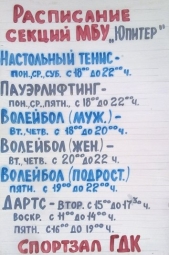 Расписание
секций МБУ „Юпитер"
Настольный теннис-
пон.,ср.,суб. с 18⁰⁰ до 22⁰⁰ ч.
Пауэрлифтинг-
пон.,ср.,пятн. с 18⁰⁰ до 22⁰⁰ ч.
Волейбол (муж.)-
вт.,четв. с 18⁰⁰ до 20⁰⁰ ч.
Волейбол (жен.)-
вт.,четв. с 20⁰⁰ до 22 ч.
Волейбол (подрост.)
пятн. с 19⁰⁰ до 22⁰⁰ ч.
Дартс - втор. с 15⁰⁰ до 17³⁰ ч.
воскр. с 11⁰⁰ до 14⁰⁰ ч.
пятн. с 16⁰⁰ до 19⁰⁰ ч.
Спортзал ГДК